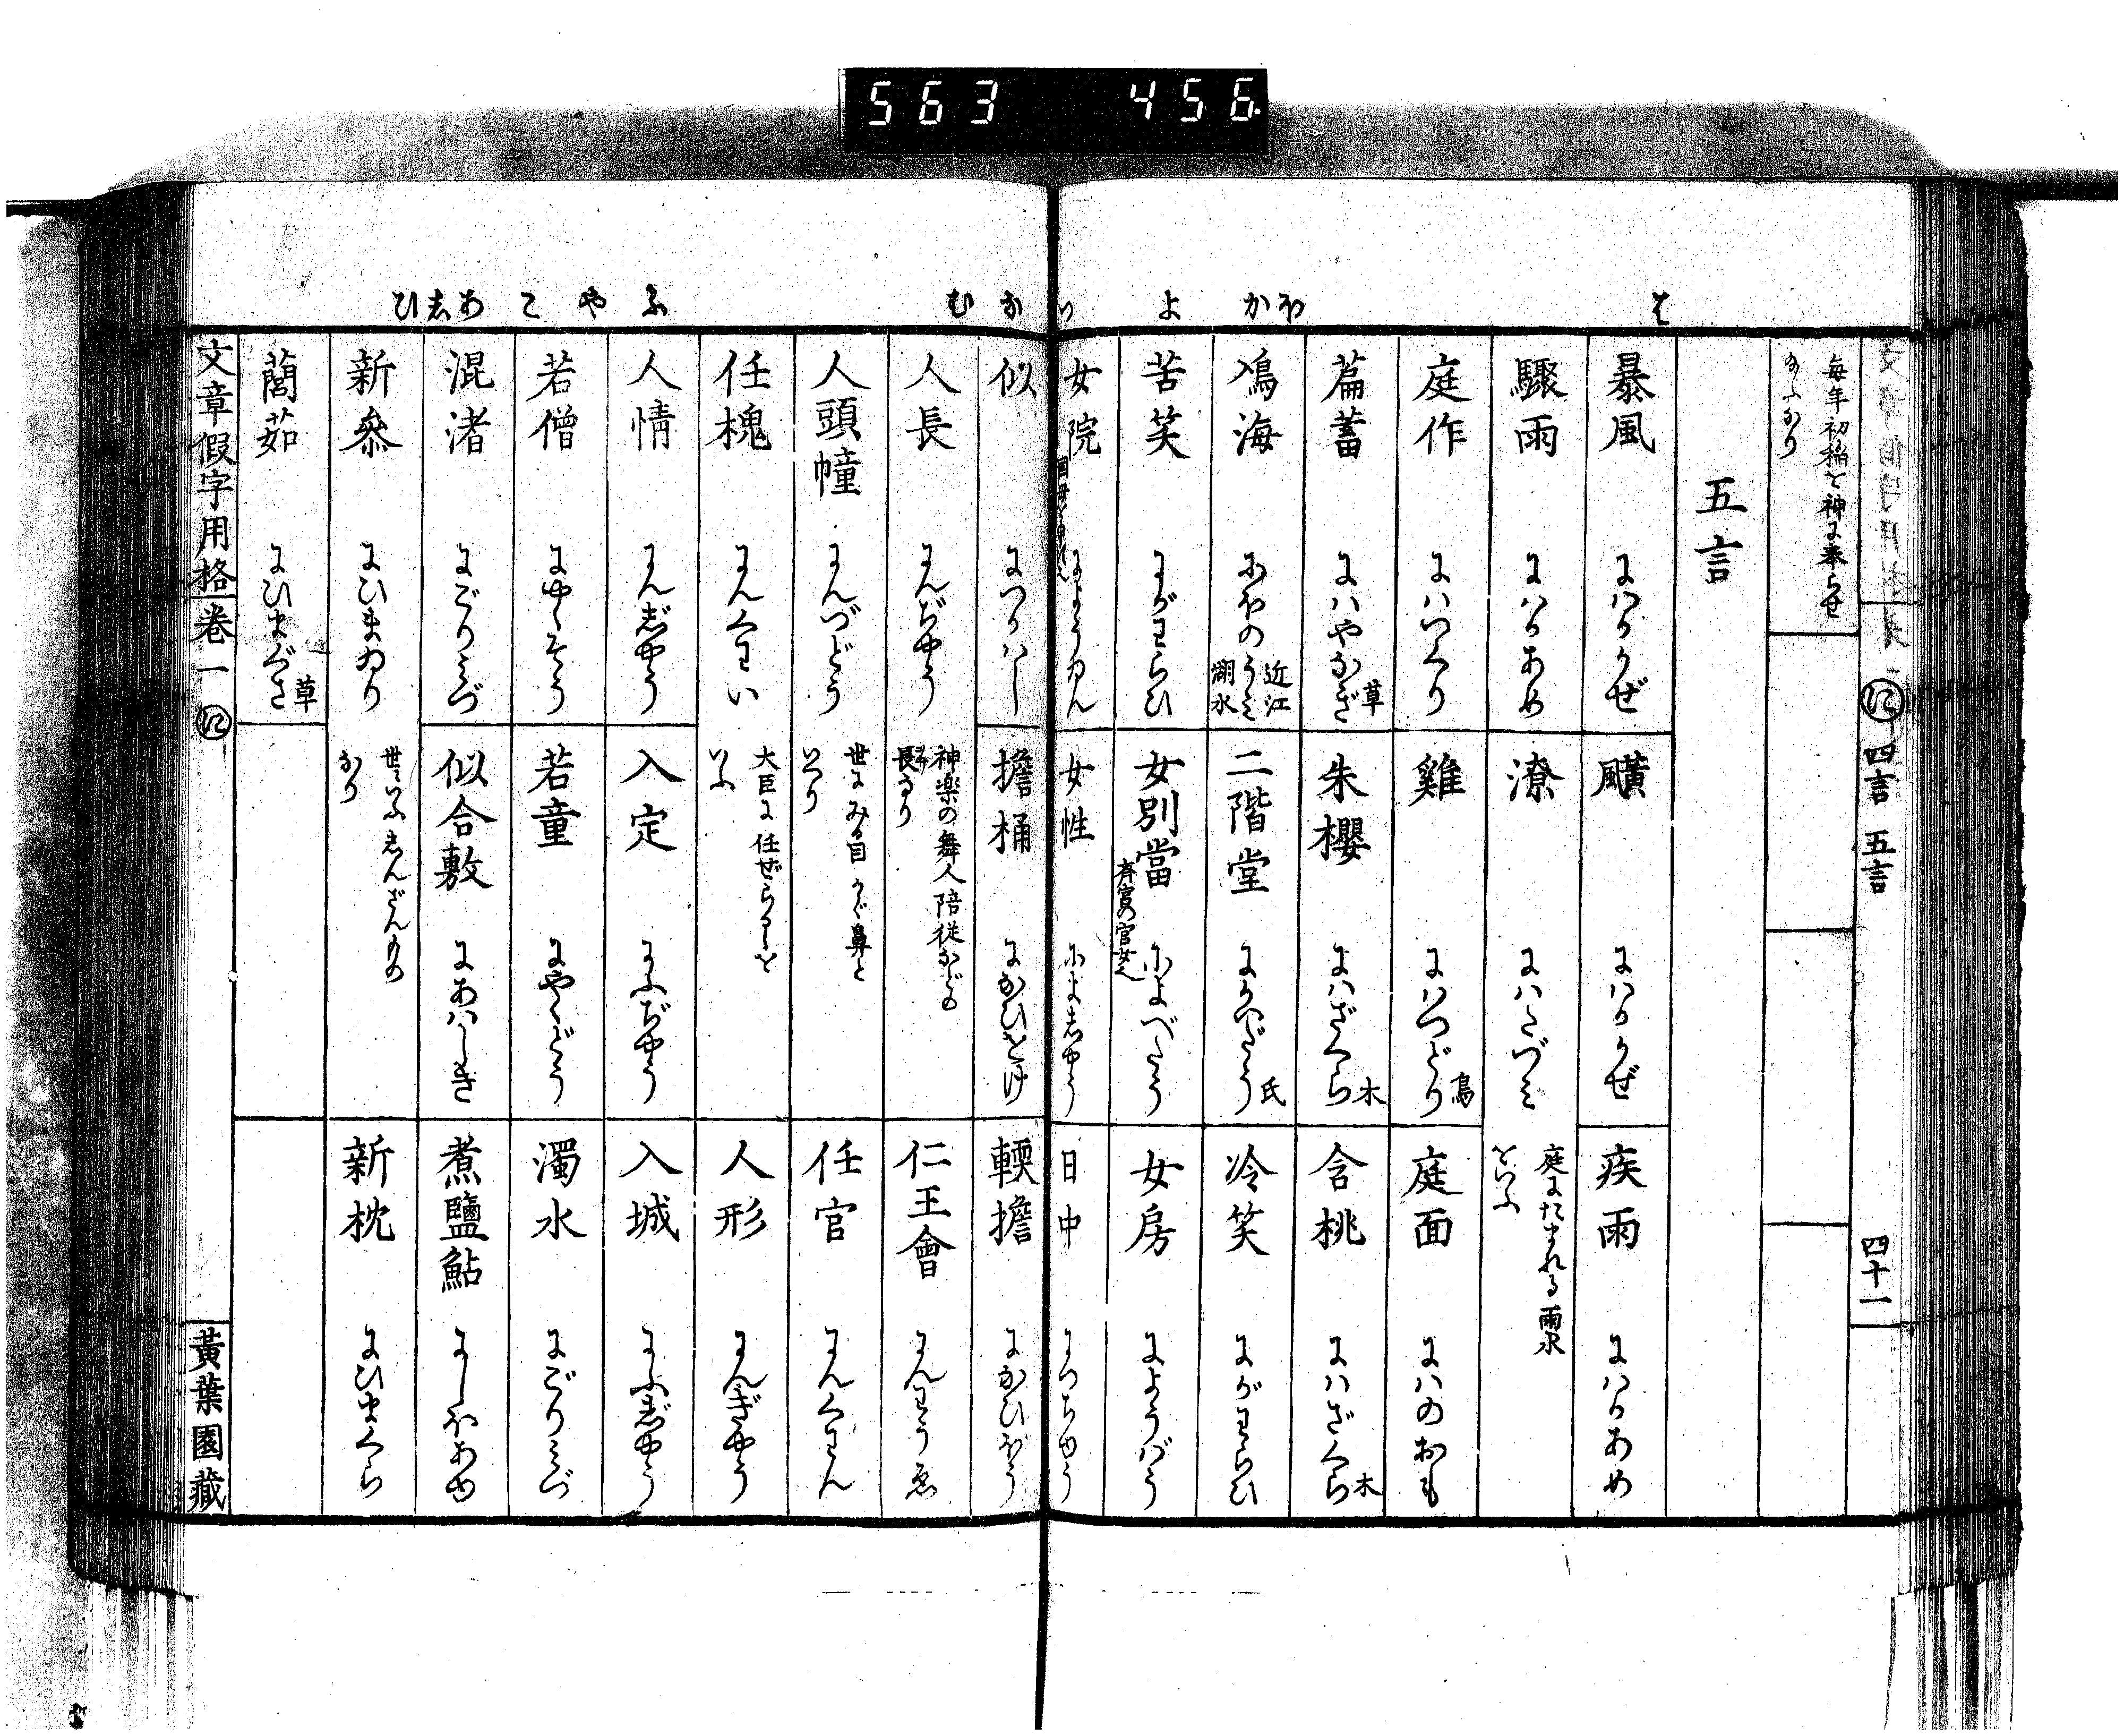 563 456
は
ほか
よ
つ
なむ
ふ
や
こ
あしひ
に 四言 五言 四十一
毎年初稲を神に奉らせ
給ふなり
五言
暴風 にハかかぜ
颶 にハかかぜ
疾雨 にハかあめ
驟雨 にハかあめ
潦 にハたづミ 庭にたまれる雨水
をいふ
庭作 にハつくり
雞 にハつどり 鳥
庭面 にハのおも
萹蓄 にハやなぎ 草
朱櫻 にハざくら 木
含桃 にハざくら 木
鳰海 にほのうミ 近江
湖水
二階堂 にかいだう 氏
冷笑 にがわらひ
苦笑 にがわらひ
女別當 斉宮の官女也 によべたう
女房 にようばう
女院 によううゐん
女性 によしやう
日中 につちゆう
似 につかハし
擔桶 になひをけ
輭擔 になひぼう
人長 にんぢやう 神楽の舞人陪従などの
長なり
仁王會 にんわうゑ
人頭幢 にんづどう 世にみる目かぐ鼻と
いへり
任官 にんくわん
任槐 にんくわい 大臣に任ぜらるゝを
いふ
人形 にんぎやう
人情 にんじやう
入定 にふぢやう
入城 にふじやう
若僧 にやくそう
若童 にやくどう
濁水 にごりミづ
混渚 にごりミづ
似合敷 にあハしき
煮鹽鮎 にしほあゆ
新參 にひまゐり 世にいふしんざんもの
なり
新枕 にひまくら
藺茹 にひまぐさ 草
文章假字用格 卷一 に 黃葉園藏